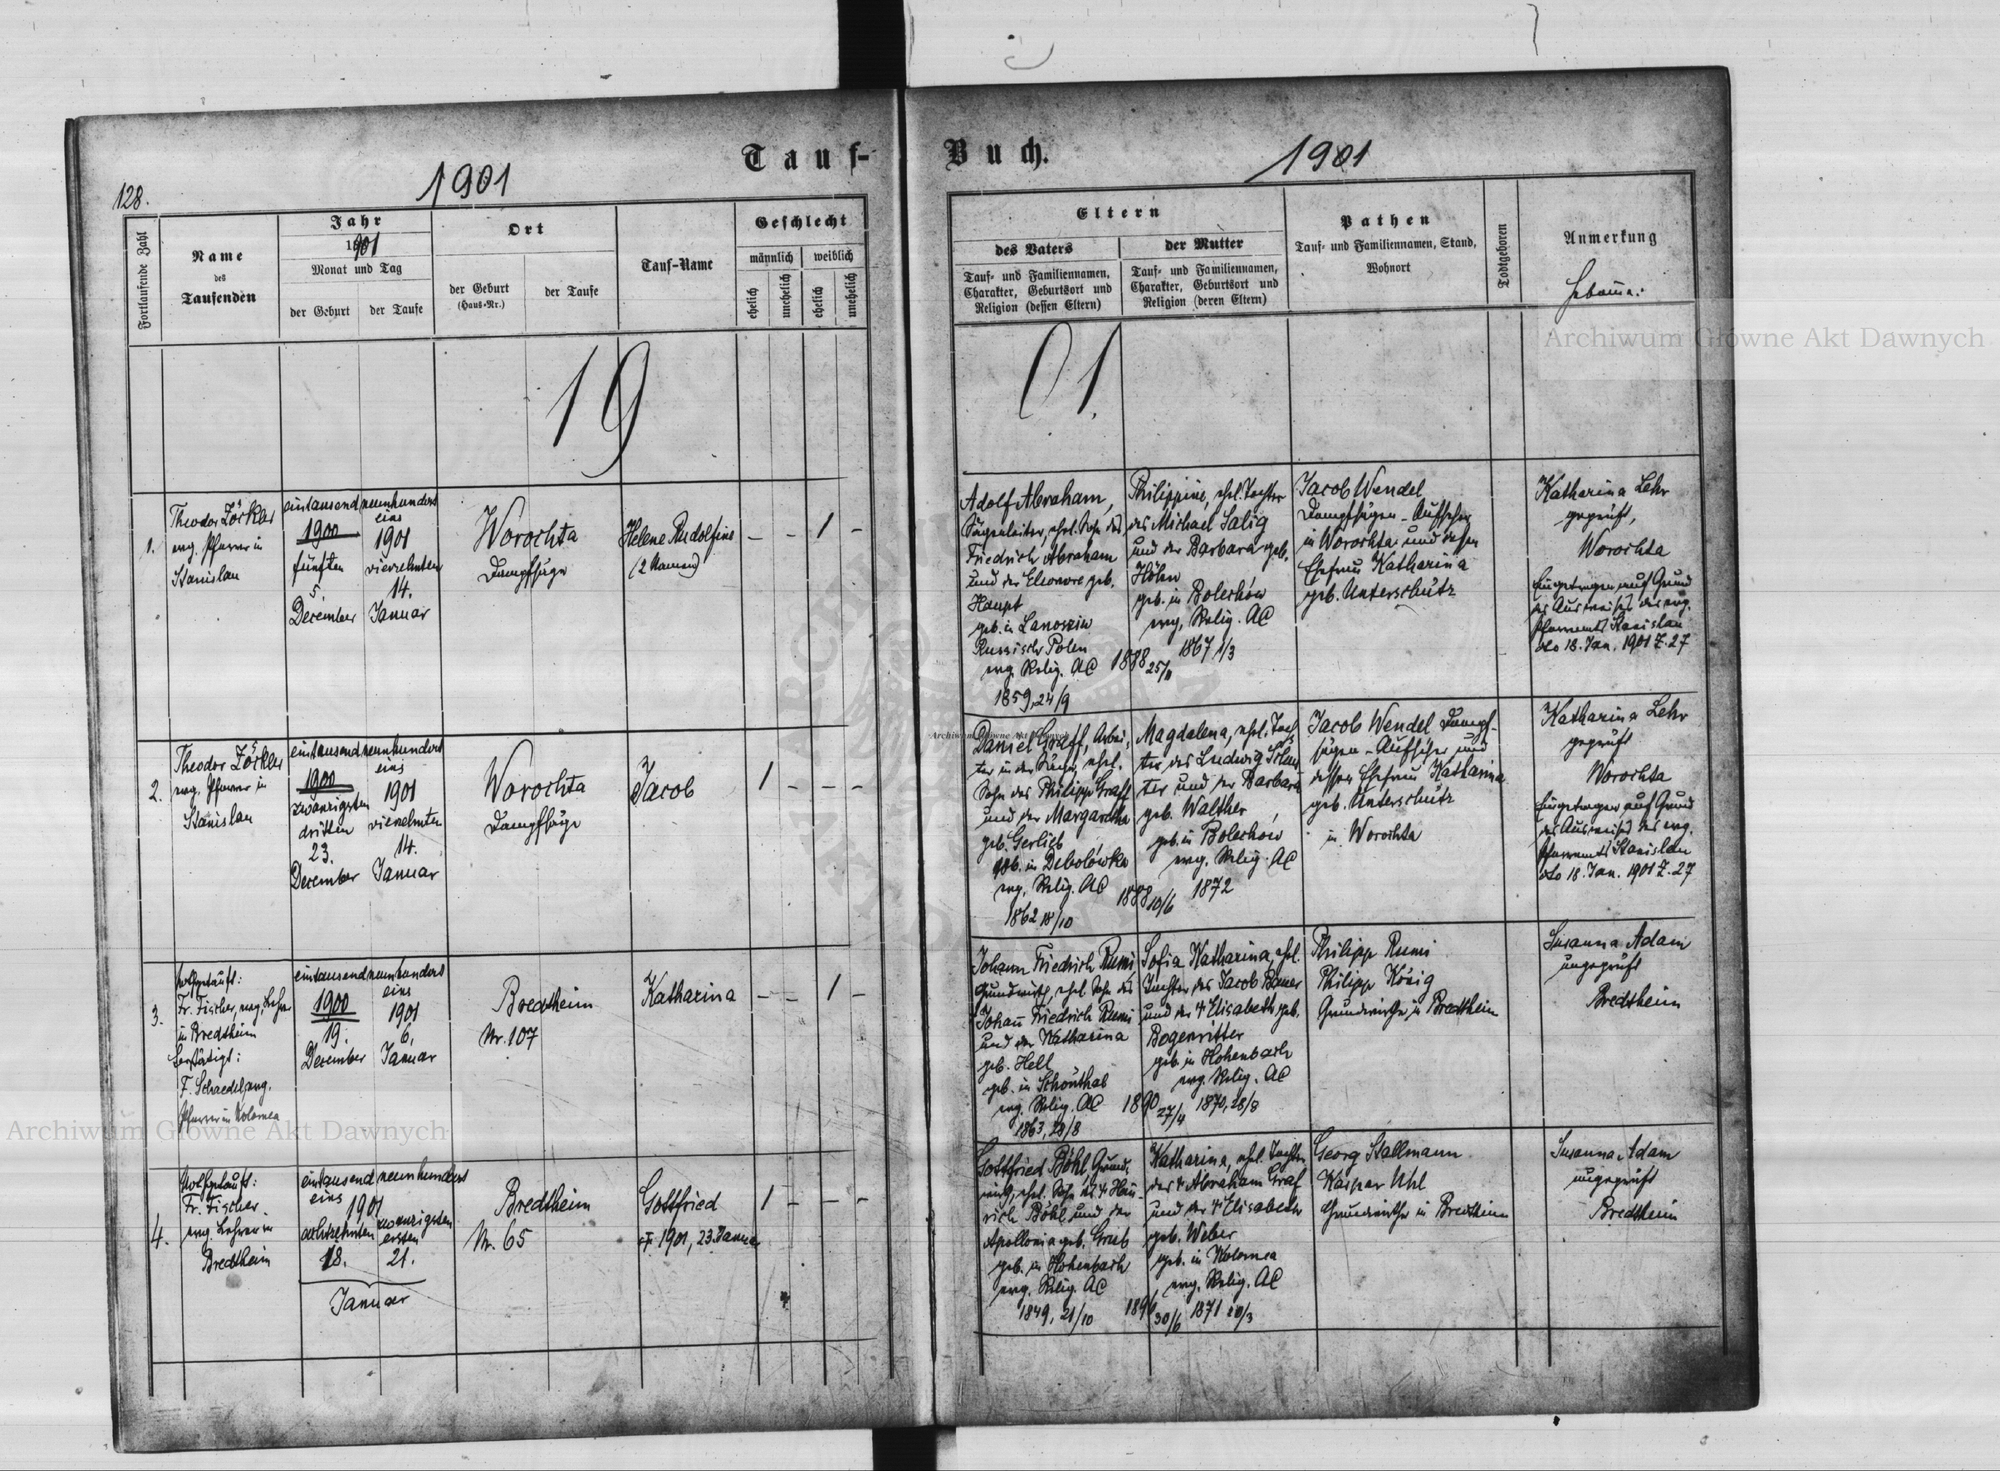 128.
1901
Tauf-
Fortlaufende Zahl
Name
des
Taufenden
Jahr
1901
Monat und Tag
der Geburt
der Taufe
Ort
der Geburt
(Haus-Nr.)
der Taufe
Tauf-Name
Geschlecht
männlich
weiblich
ehelich
unehelich
ehelich
unehelich
19
1.
Theodor Zöckler
evg. Pfarrer in
Stanislau
eintausendneunhundert
eins
1900
1901
fünften
vierzehnten
5.
14.
December
Januar
Worochta
Dampfsäge
Helene Rudolfine
(2 Namen)
– – 1 –
2.
Theodor Zöckler
evg. Pfarrer in
Stanislau
eintausendneunhundert
eins
1900
1901
zwanzigsten
dritten
vierzehnten
23.
14.
December
Januar
Worochta
Dampfsäge
Jacob
1 – – –
3.
Nothgetauft:
Fr. Fischer, evg. Lehrer
in Bredtheim
bestätigt:
F. Schaedel, evg.
Pfarrer in Kolomea
eintausendneunhundert
eins
1900
1901
19.
6.
December
Januar
Bredtheim
Nr. 107
Katharina
– – 1 –
4.
Nothgetauft:
Fr. Fischer
evg. Lehrer in
Bredtheim
eintausendneunhundert
eins
1901
achtzehnten
zwanzigsten
ersten
18.
21.
Januar
Bredtheim
Nr. 65
Gottfried
† 1901, 23. Januar
1 – – –
Buch.
1901
Eltern
des Vaters
der Mutter
Tauf- und Familiennamen,
Charakter, Geburtsort und
Religion (dessen Eltern)
Tauf- und Familiennamen,
Charakter, Geburtsort und
Religion (deren Eltern)
Pathen
Tauf- und Familiennamen, Stand,
Wohnort
Todtgeboren
Anmerkung
Hebame:
01.
Adolf Abraham,
Sägenleiter, ehel. Sohn des
Friedrich Abraham
und der Eleonore geb.
Haupt
geb. in
Russisch Polen
evg. Relig. AC
1859, 24/9
1888 25/11
Philippine, ehel. Tochter
des Michael Salig
und der Barbara geb.
geb. in Bolechów
evg. Relig. AC
1867 1/3
Jacob Wendel
Dampfsägen-Aufseher
in Worochta und dessen
Ehefrau Katharina
geb. Unterschütz
Katharina Lehr
geprüft,
Worochta
Eingetragen auf Grund
des Ausweises des evg.
Pfarramts Stanislau
dto 18. Jan. 1901 Z. 27
Daniel Graff, Arbei-
ter in der Säge, ehel.
Sohn des Philipp Graff
und der Margaretha
geb. Gerlieb
geb. in Debolówka
evg. Relig. AC
1862 18/10
1888 10/6
Magdalena, ehel. Toch-
ter des Ludwig
und der Barbara
geb. Walther,
geb. in Bolechów
evg. Relig. AC
1872
Jacob Wendel Dampf-
sägen-Aufseher und
dessen Ehefrau Katharina
geb. Unterschütz
in Worochta
Katharina Lehr
geprüft
Worochta
Eingetragen auf Grund
des Ausweises des evg.
Pfarramts Stanislau
dto 18. Jan. 1901 Z. 27
Johann Friedrich Rumi
Grundwirth, ehel. Sohn des
Johann Friedrich Rumi
und der Katharina
geb. Hell
geb. in Schönthal
evg. Relig. AC
1863, 28/8
1890 27/4
Sofia Katharina, ehel.
Tochter des Jacob Bauer
und der † Elisabeth geb.
Bogenritter
geb. in Hohenbach
evg. Relig. AC
1870, 28/8
Philipp Rumi
Philipp König
Grundwirthe in Bredtheim
Susanna Adam
ungeprüft
Bredtheim
Gottfried Böhl, Grund-
wirth, ehel. Sohn des † Hein-
rich Böhl und der
Apollonia geb. Grub
geb. in Hohenbach
evg. Relig. AC
1849, 21/10
1896 30/6
Katharina, ehel. Tochter
des † Abraham Graf
und der † Elisabeth
geb. Weber
geb. in Kolomea
evg. Relig. AC
1871 20/3
Georg Stallmann
Kaspar Uhl
Grundwirthe in Bredtheim
Susanna Adam
ungeprüft
Bredtheim
Archiwum Główne Akt Dawnych
Archiwum Główne Akt Dawnych
Archiwum Główne Akt Dawnych